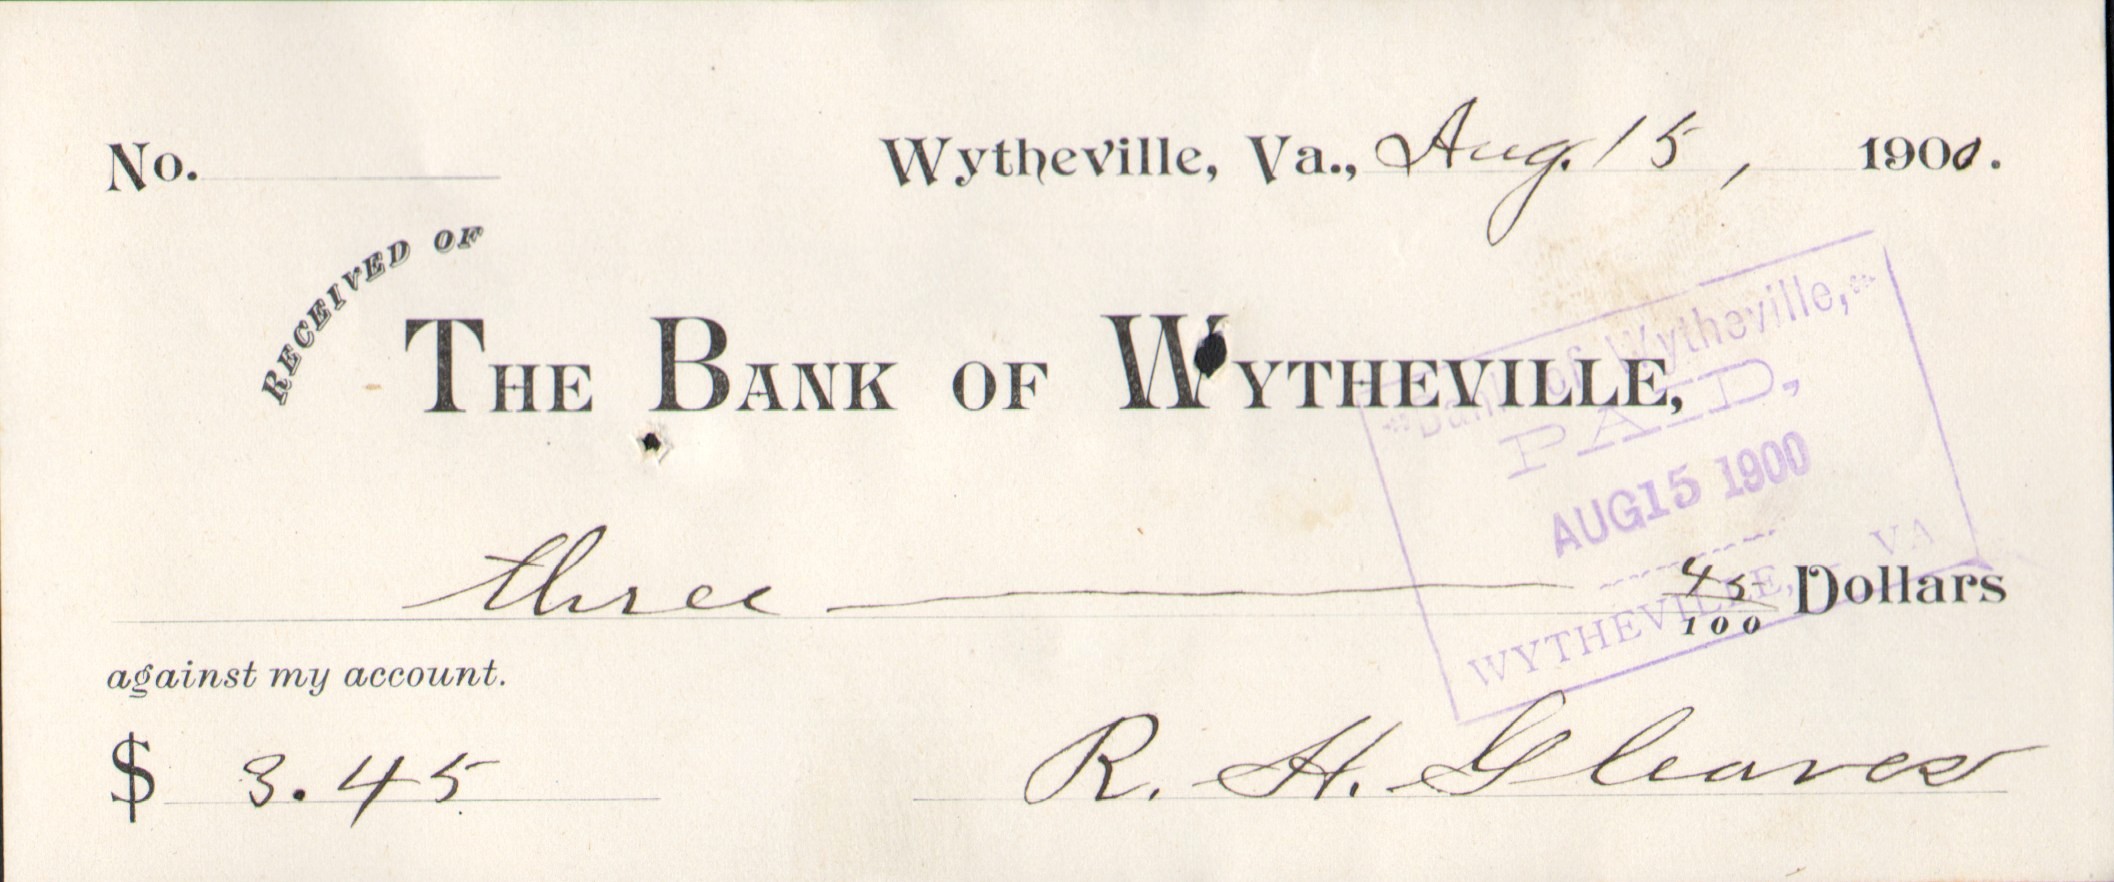 No.
Wytheville, Va., Aug. 15, 1900.
RECEIVED OF
THE BANK OF WYTHEVILLE,
"Bank of Wytheville,"
PAID,
AUG 15 1900
WYTHEVILLE, VA
three 45/100 Dollars
against my account.
$ 3.45
R. H. Gleaves